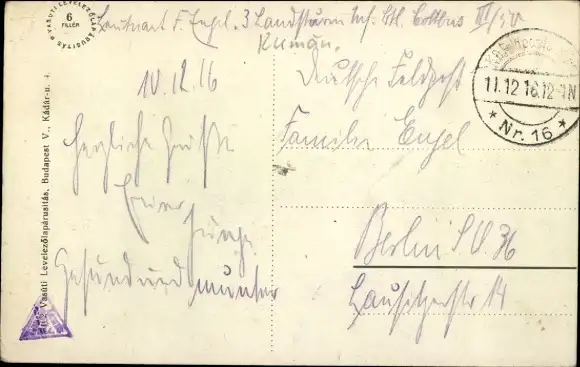 VASUTI LEVELEZŐLAPÁRUSITÁS
6
FILLÉR
Leutnant F. Engel. 3 Landsturm Inf. Btl. Cottbus III/50
Rumän.
10.12.16
Deutsche Feldpost
11.12.16.12-1N
* Nr. 16 *
Familie Engel
Herzliche Grüße
Euer
Junge
Gesund und munter
Berlin S.O. 36
Lausitzerstr 14
Vasúti Levelezőlapárusitás, Budapest V., Kádár-u. 4.